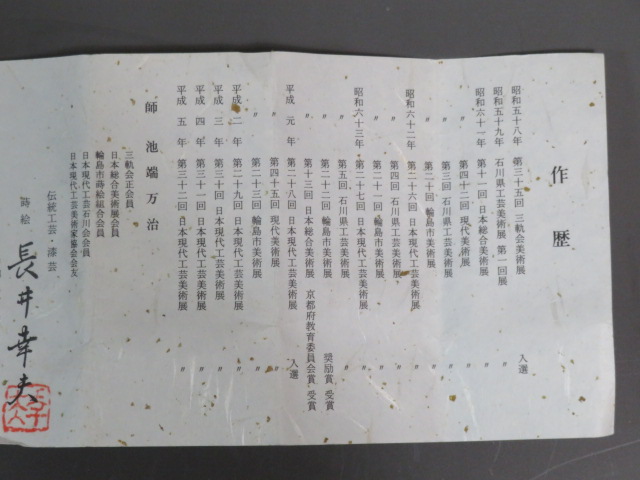 作歴
昭和五十八年 第三十五回 三軌会美術展 入選
昭和五十九年 石川県工芸美術展 第一回展 〃
昭和六十一年 第十一回 日本総合美術展 〃
〃 第四十二回 現代美術展 〃
〃 第三回 石川県工芸美術展 〃
〃 第二十回 輪島市美術展 〃
昭和六十二年 第二十六回 日本現代工芸美術展 〃
〃 第四回 石川県工芸美術展 〃
〃 第二十一回 輪島市美術展 〃
昭和六十三年 第二十七回 日本現代工芸美術展 〃
〃 第五回 石川県工芸美術展 〃
〃 第二十二回 輪島市美術展 奨励賞 受賞
〃 第十三回 日本総合美術展 京都府教育委員会賞 受賞
平成元年 第二十八回 日本現代工芸美術展 入選
〃 第四十五回 現代美術展 〃
〃 第二十三回 輪島市美術展 〃
平成二年 第二十九回 日本現代工芸美術展 〃
平成三年 第三十回 日本現代工芸美術展 〃
平成四年 第三十一回 日本現代工芸美術展 〃
平成五年 第三十二回 日本現代工芸美術展 〃
師 池端万治
三軌会正会員
日本総合美術展会員
輪島市蒔絵組合会員
日本現代工芸石川会会員
日本現代工芸美術家協会会友
伝統工芸・漆芸
蒔絵 長井幸夫